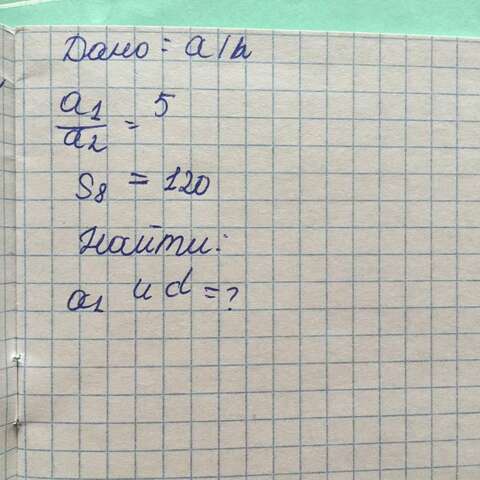 Дано: a/n
a1/a2 = 5
S8 = 120
Найти:
a1 и d = ?